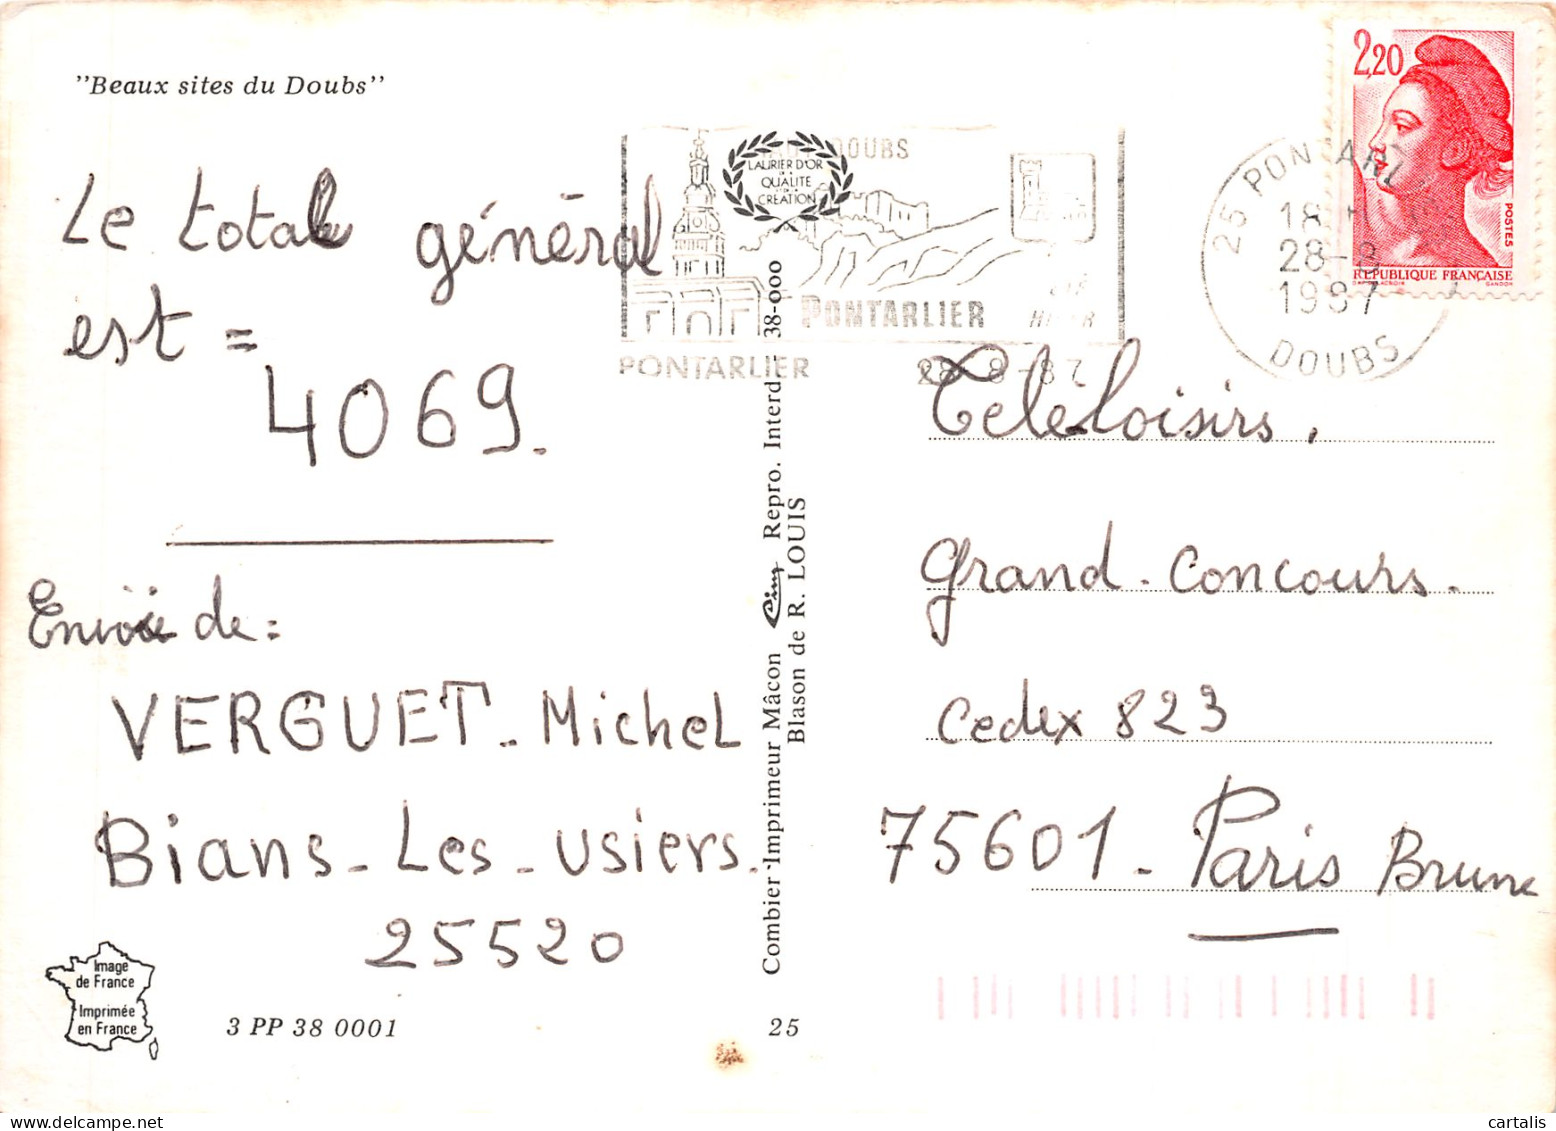 "Beaux sites du Doubs"
Le total général
est =
4069.
Envoie de :
VERGUET - Michel
Bians - Les - Usiers.
25520
Image
de France
Imprimée
en France
3 PP 38 0001
25
Combier Imprimeur Mâcon Cim Repro. Interd. 38-000
Blason de R. LOUIS
LAURIER D'OR
DE LA
QUALITÉ
CRÉATION
DOUBS
PONTARLIER
PONTARLIER
28-8-87
25 PONTARLIER
18 H
28-8
1987
DOUBS
2,20
POSTES
REPUBLIQUE FRANÇAISE
GANDON
Téléloisirs,
Grand - Concours.
Cedex 823
75601 - Paris Brune
cartalis